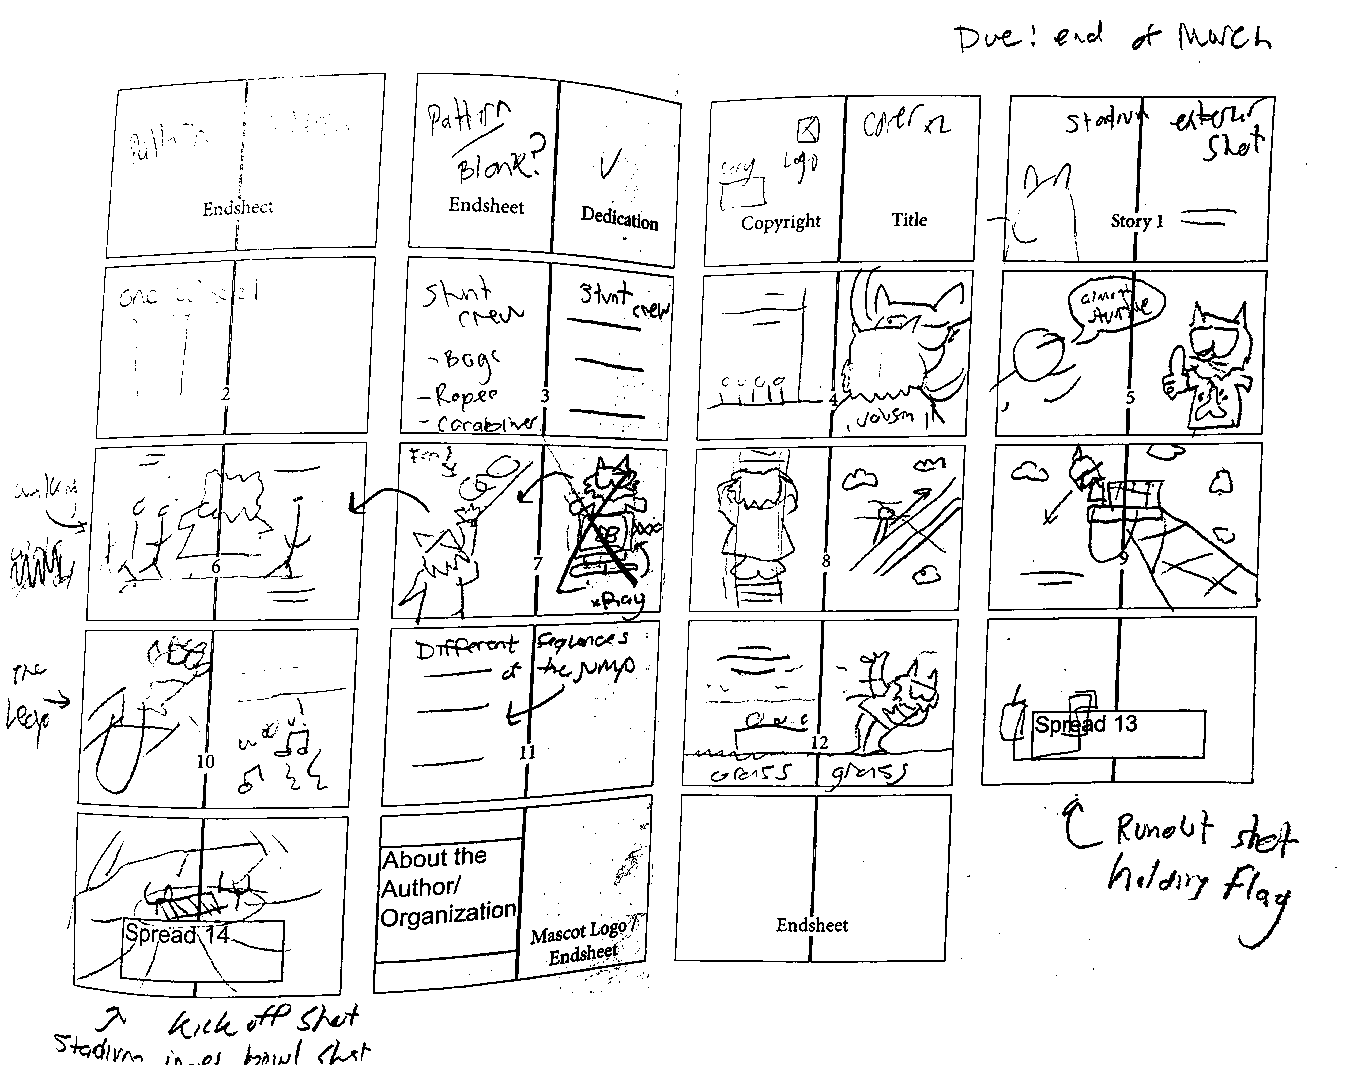 Due: end of March
Pattern
Endsheet
Pattern
Blank?
Endsheet
Dedication
Logo
Copyright
Cover x2
Title
Stadium exterior
Shot
Story 1
one
2
Stunt
crew
- Bags
- Ropes
- Carabiner
Stunt
crew
3
4
almost
5
6
7
xray
8
9
The
Leap
10
Different sequences
of the jump
11
12
grass grass
Spread 13
Runout shot
holding flag
Spread 14
Kick off shot
Stadium inner bowl shot
About the
Author/
Organization
Mascot Logo/
Endsheet
Endsheet